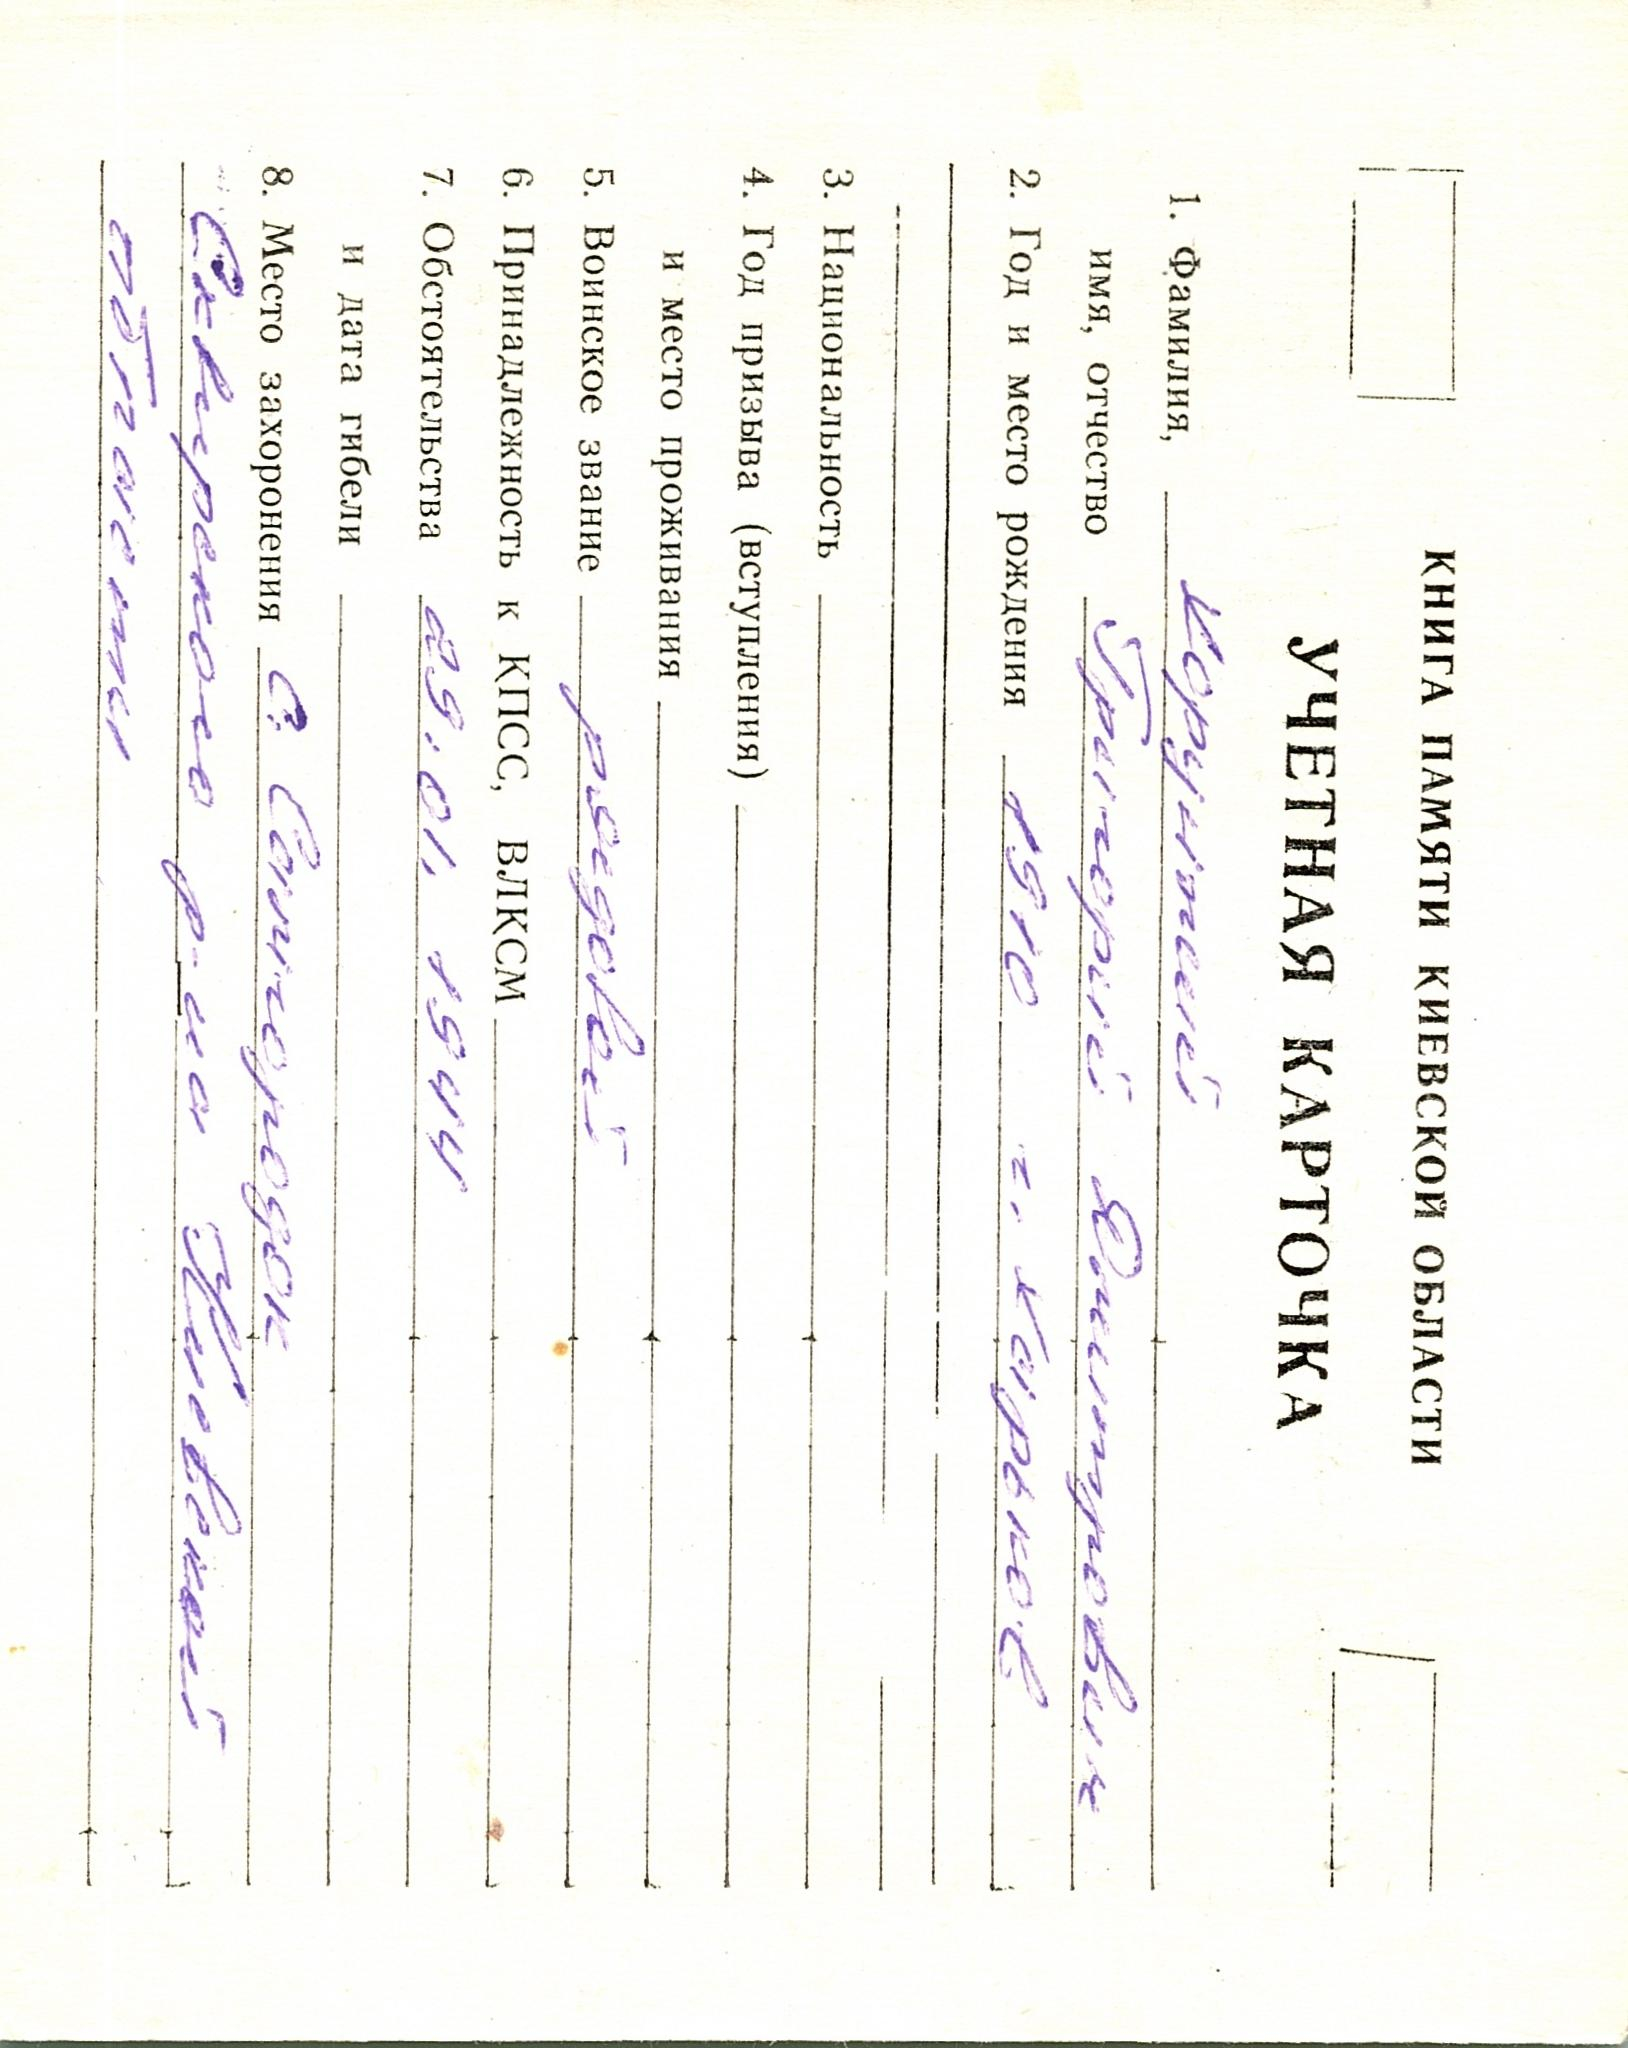 КНИГА ПАМЯТИ КИЕВСКОЙ ОБЛАСТИ
УЧЕТНАЯ КАРТОЧКА
1. Фамилия,
имя, отчество Григорий
2. Год и место рождения 1910 г. Харьков
3. Национальность
4. Год призыва (вступления)
и место проживания
5. Воинское звание рядовой
6. Принадлежность к КПСС, ВЛКСМ
7. Обстоятельства 29.01.1944
и дата гибели
8. Место захоронения с.
Сквирского р-на Киевской
области